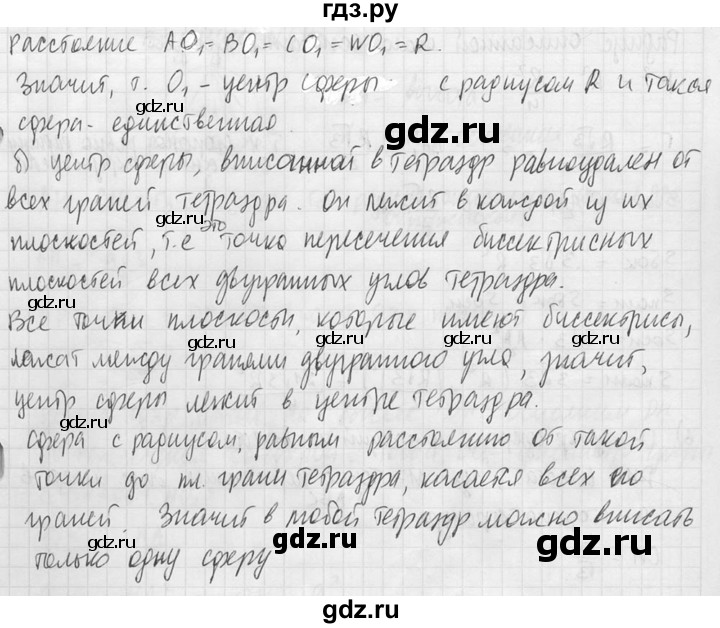 гдз.ру
расстояние AO₁=BO₁=CO₁=WO₁=R.
Значит, т. O₁ - центр сферы с радиусом R и такая
сфера - единственная.
б) центр сферы, вписанной в тетраэдр равноудалён от
всех граней тетраэдра. Он лежит в каждой из их
плоскостей, т.е это точка пересечения биссектрисных
плоскостей всех двугранных углов тетраэдра.
Все точки плоскости, которые имеют биссектрисы,
лежат между гранями двугранного угла, значит,
центр сферы лежит в центре тетраэдра.
Сфера с радиусом, равным расстоянию от такой
точки до пл. грани тетраэдра, касается всех его
граней. Значит в любой тетраэдр можно вписать
только одну сферу
gdz.ru
gdz.ru
gdz.ru
gdz.ru
gdz.ru
gdz.ru
gdz.ru
gdz.ru
gdz.ru
gdz.ru
gdz.ru
gdz.ru
gdz.ru
gdz.ru